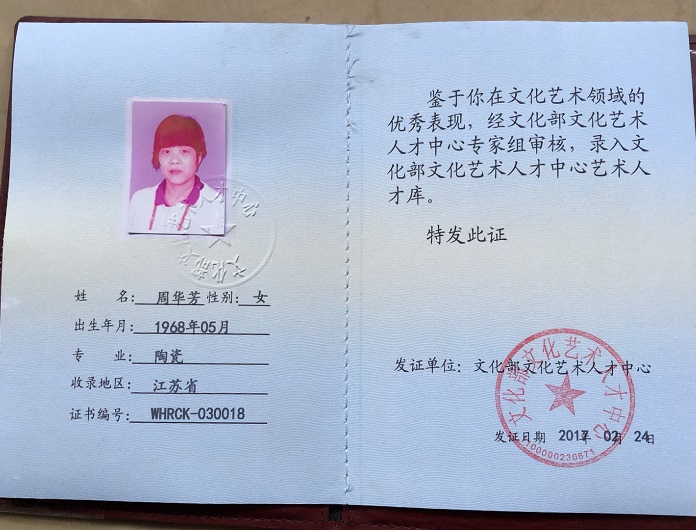 姓 名： 周华芳 性别： 女
出生年月： 1968年05月
专 业： 陶瓷
收录地区： 江苏省
证书编号： WHRCK-030018
鉴于你在文化艺术领域的
优秀表现，经文化部文化艺术
人才中心专家组审核，录入文
化部文化艺术人才中心艺术人
才库。
特发此证
发证单位：文化部文化艺术人才中心
发证日期 2017年 02月 24日
文化部文化艺术人才中心
100000230671